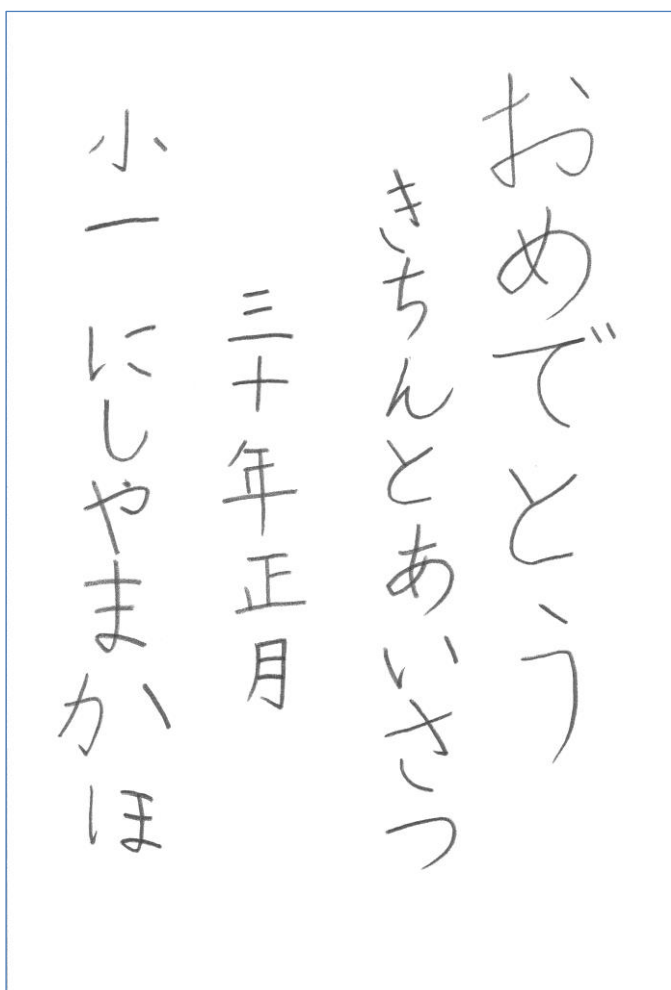 おめでとう
きちんとあいさつ
三十年正月
小一 にしやまかほ